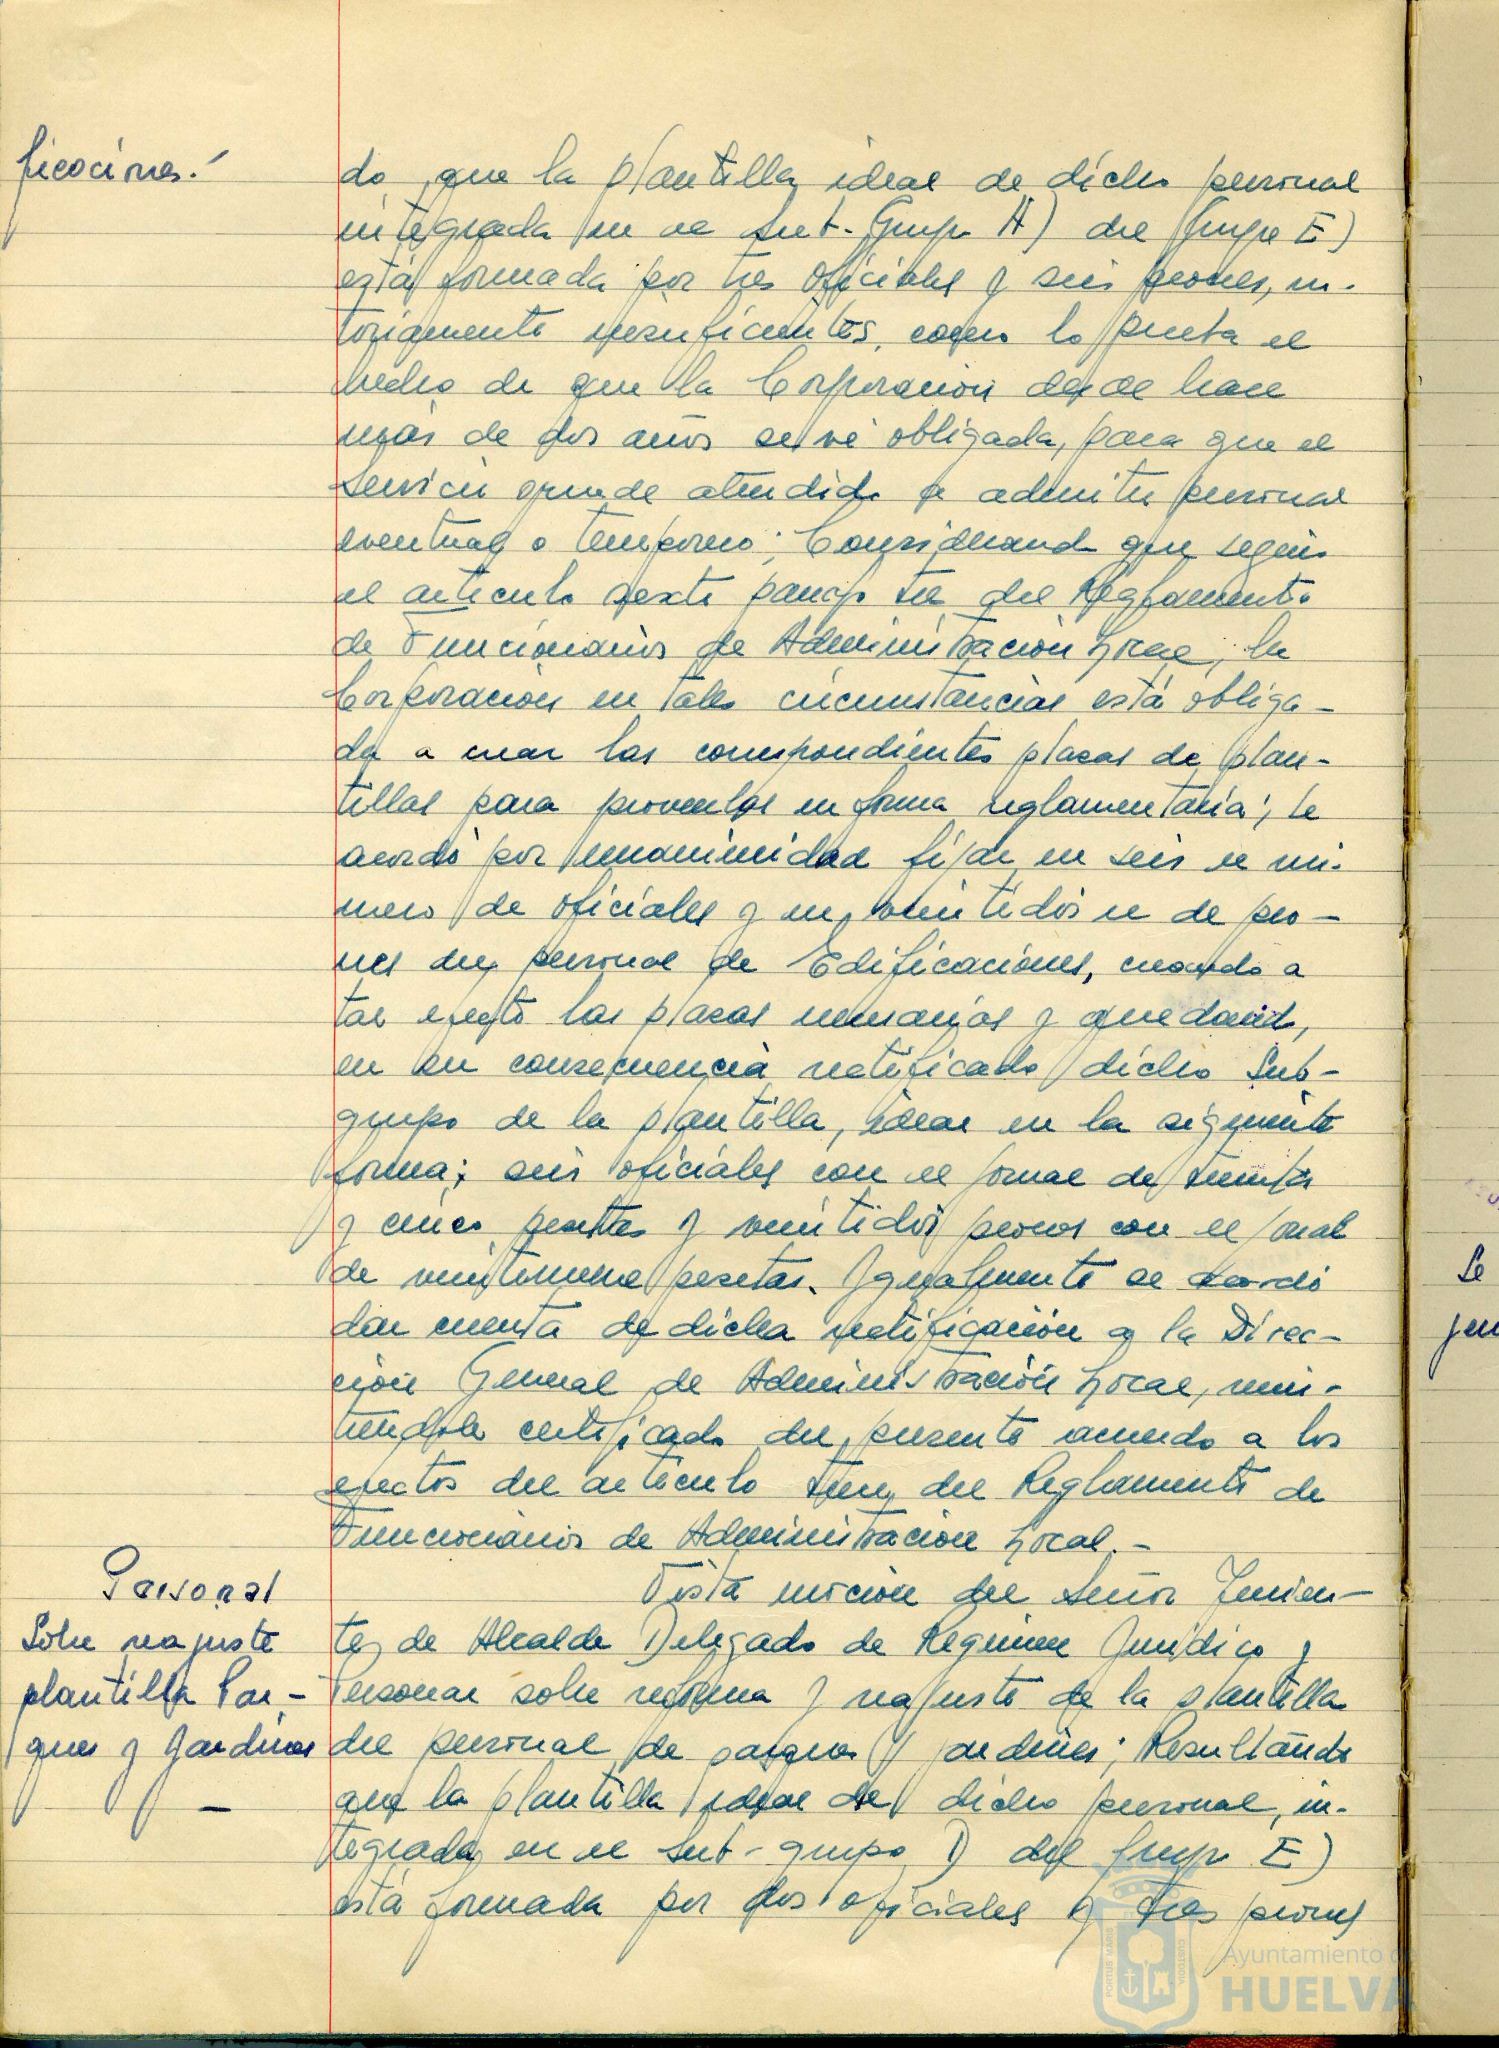 ficaciones.-
do que la plantilla ideal de dicho personal
integrada en el Sub-Grupo A) del Grupo E)
está formada por tres oficiales y seis peones, no-
toriamente insuficientes, como lo prueba el
hecho de que la Corporación desde hace
más de dos años se ve obligada, para que el
servicio quede atendido a admitir personal
eventual o temporero; Considerando que según
el artículo sexto párrafo tres del Reglamento
de Funcionarios de Administración Local, la
Corporación en tales circunstancias está obliga-
da a crear las correspondientes plazas de plan-
tillas para proveerlas en forma reglamentaria; se
acordó por unanimidad fijar en seis el nú-
mero de oficiales y en veintidós el de peo-
nes del personal de Edificaciones, creando a
tal efecto las plazas necesarias y quedando,
en su consecuencia rectificado dicho Sub-
grupo de la plantilla ideal en la siguiente
forma; seis oficiales con el jornal de treinta
y cinco pesetas y veintidós peones con el jornal
de veintinueve pesetas. Igualmente se acordó
dar cuenta de dicha rectificación a la Direc-
ción General de Administración Local, remi-
tiéndole certificado del presente acuerdo a los
efectos del artículo trece del Reglamento de
Funcionarios de Administración Local.-
Personal
Sobre reajuste
plantilla Par-
ques y Jardines
-
Vista moción del Señor Tenien-
te de Alcalde Delegado de Régimen Jurídico y
Personal sobre reforma y reajuste de la plantilla
del personal de parques y jardines; Resultando
que la plantilla ideal de dicho personal, in-
tegrada en el Sub-grupo D) del Grupo E)
está formada por dos oficiales y tres peones
Se
Ayuntamiento de
HUELVA
PORTUS MARIS
CUSTODIA